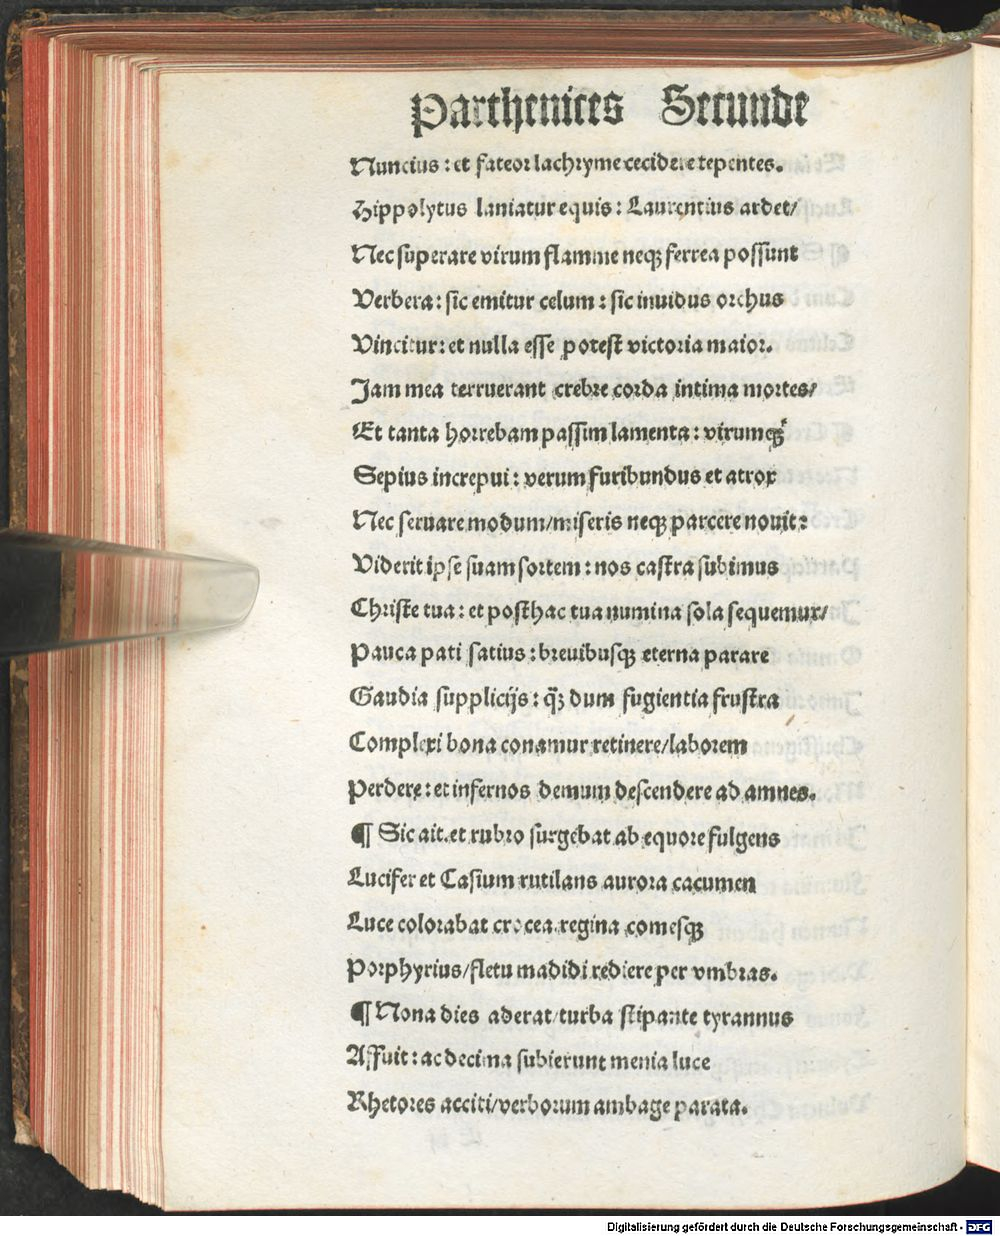 Parthenices Secunde
Nuncius: et fateor lachryme cecidere tepentes.
Hippolytus laniatur equis: Laurentius ardet/
Nec superare virum flamme neqꝫ ferrea possunt
Verbera: sic emitur celum: sic inuidus orchus
Vincitur: et nulla esse potest victoria maior.
Jam mea terruerant crebre corda intima mortes/
Et tanta horrebam passim lamenta: virumqꝫ
Sepius increpui: verum furibundus et atrox
Nec seruare modum/miseris neqꝫ parcere nouit:
Viderit ipse suam sortem: nos castra subimus
Christe tua: et posthac tua numina sola sequemur/
Pauca pati satius: breuibusqꝫ eterna parare
Gaudia supplicijs: q̃ꝫ dum fugientia frustra
Complexi bona conamur retinere/laborem
Perdere: et infernos demum descendere ad amnes.
¶ Sic ait. et rubro surgebat ab equore fulgens
Lucifer et Casium rutilans aurora cacumen
Luce colorabat crocea. regina comesqꝫ
Porphyrius/fletu madidi rediere per vmbras.
¶ Nona dies aderat/turba stipante tyrannus
Affuit: ac decima subierunt menia luce
Rhetores acciti/verborum ambage parata.
Digitalisierung gefördert durch die Deutsche Forschungsgemeinschaft - DFG